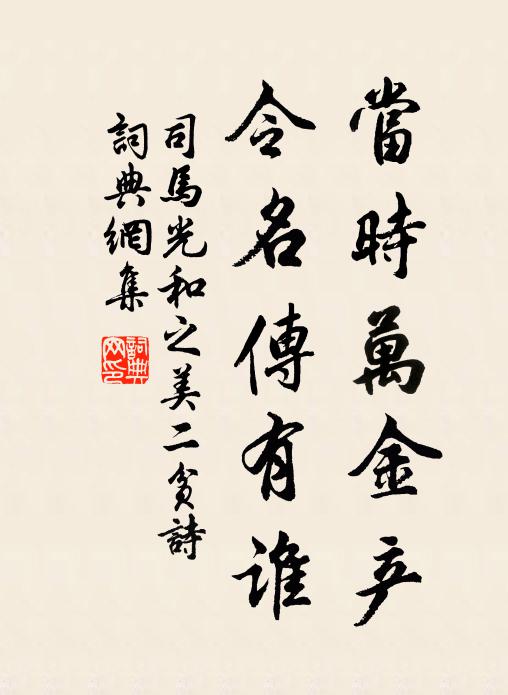 當時萬金产
令名傳有誰
司馬光和之美二貧詩
詞典網集
詞典網印